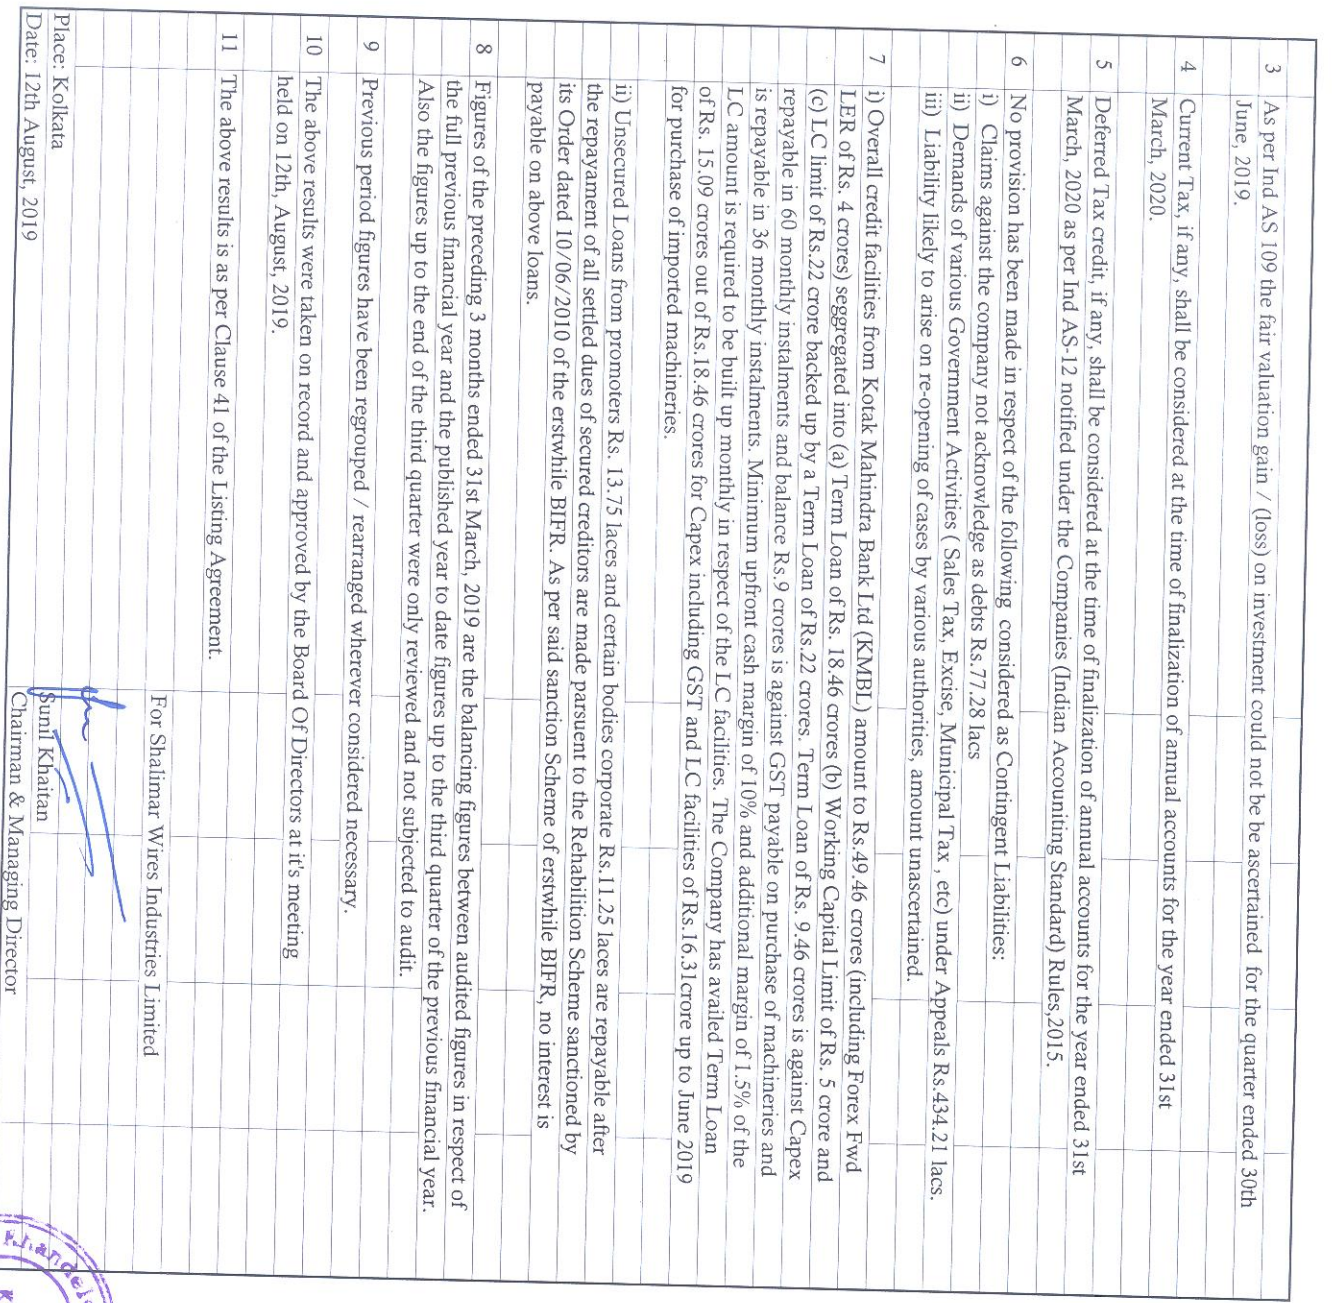 3 As per Ind AS 109 the fair valuation gain / (loss) on investment could not be be ascertained for the quarter ended 30th
June, 2019.
4 Current Tax, if any, shall be considered at the time of finalization of annual accounts for the year ended 31st
March, 2020.
5 Deferred Tax credit, if any, shall be considered at the time of finalization of annual accounts for the year ended 31st
March, 2020 as per Ind AS-12 notified under the Companies (Indian Accouniting Standard) Rules,2015.
6 No provision has been made in respect of the following considered as Contingent Liabilities:
i) Claims against the company not acknowledge as debts Rs.77.28 lacs
ii) Demands of various Government Activities ( Sales Tax, Excise, Municipal Tax , etc) under Appeals Rs.434.21 lacs.
iii) Liability likely to arise on re-opening of cases by various authorities, amount unascertained.
7 i) Overall credit facilities from Kotak Mahindra Bank Ltd (KMBL) amount to Rs.49.46 crores (including Forex Fwd
LER of Rs. 4 crores) seggregated into (a) Term Loan of Rs. 18.46 crores (b) Working Capital Limit of Rs. 5 crore and
(c) LC limit of Rs.22 crore backed up by a Term Loan of Rs.22 crores. Term Loan of Rs. 9.46 crores is against Capex
repayable in 60 monthly instalments and balance Rs.9 crores is against GST payable on purchase of machineries and
is repayable in 36 monthly instalments. Minimum upfront cash margin of 10% and additional margin of 1.5% of the
LC amount is required to be built up monthly in respect of the LC facilities. The Company has availed Term Loan
of Rs. 15.09 crores out of Rs.18.46 crores for Capex including GST and LC facilities of Rs.16.31crore up to June 2019
for purchase of imported machineries.
ii) Unsecured Loans from promoters Rs. 13.75 laces and certain bodies corporate Rs.11.25 laces are repayable after
the repayament of all settled dues of secured creditors are made parsuent to the Rehabilition Scheme sanctioned by
its Order dated 10/06/2010 of the erstwhile BIFR. As per said sanction Scheme of erstwhile BIFR, no interest is
payable on above loans.
8 Figures of the preceding 3 months ended 31st March, 2019 are the balancing figures between audited figures in respect of
the full previous financial year and the published year to date figures up to the third quarter of the previous financial year.
Also the figures up to the end of the third quarter were only reviewed and not subjected to audit.
9 Previous period figures have been regrouped / rearranged wherever considered necessary.
10 The above results were taken on record and approved by the Board Of Directors at it's meeting
held on 12th, August, 2019.
11 The above results is as per Clause 41 of the Listing Agreement.
For Shalimar Wires Industries Limited
Place: Kolkata
Date: 12th August, 2019
Sunil Khaitan
Chairman & Managing Director